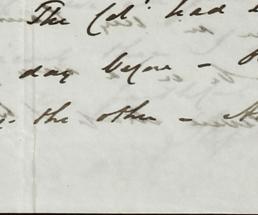 The Col had
day before -
the other -